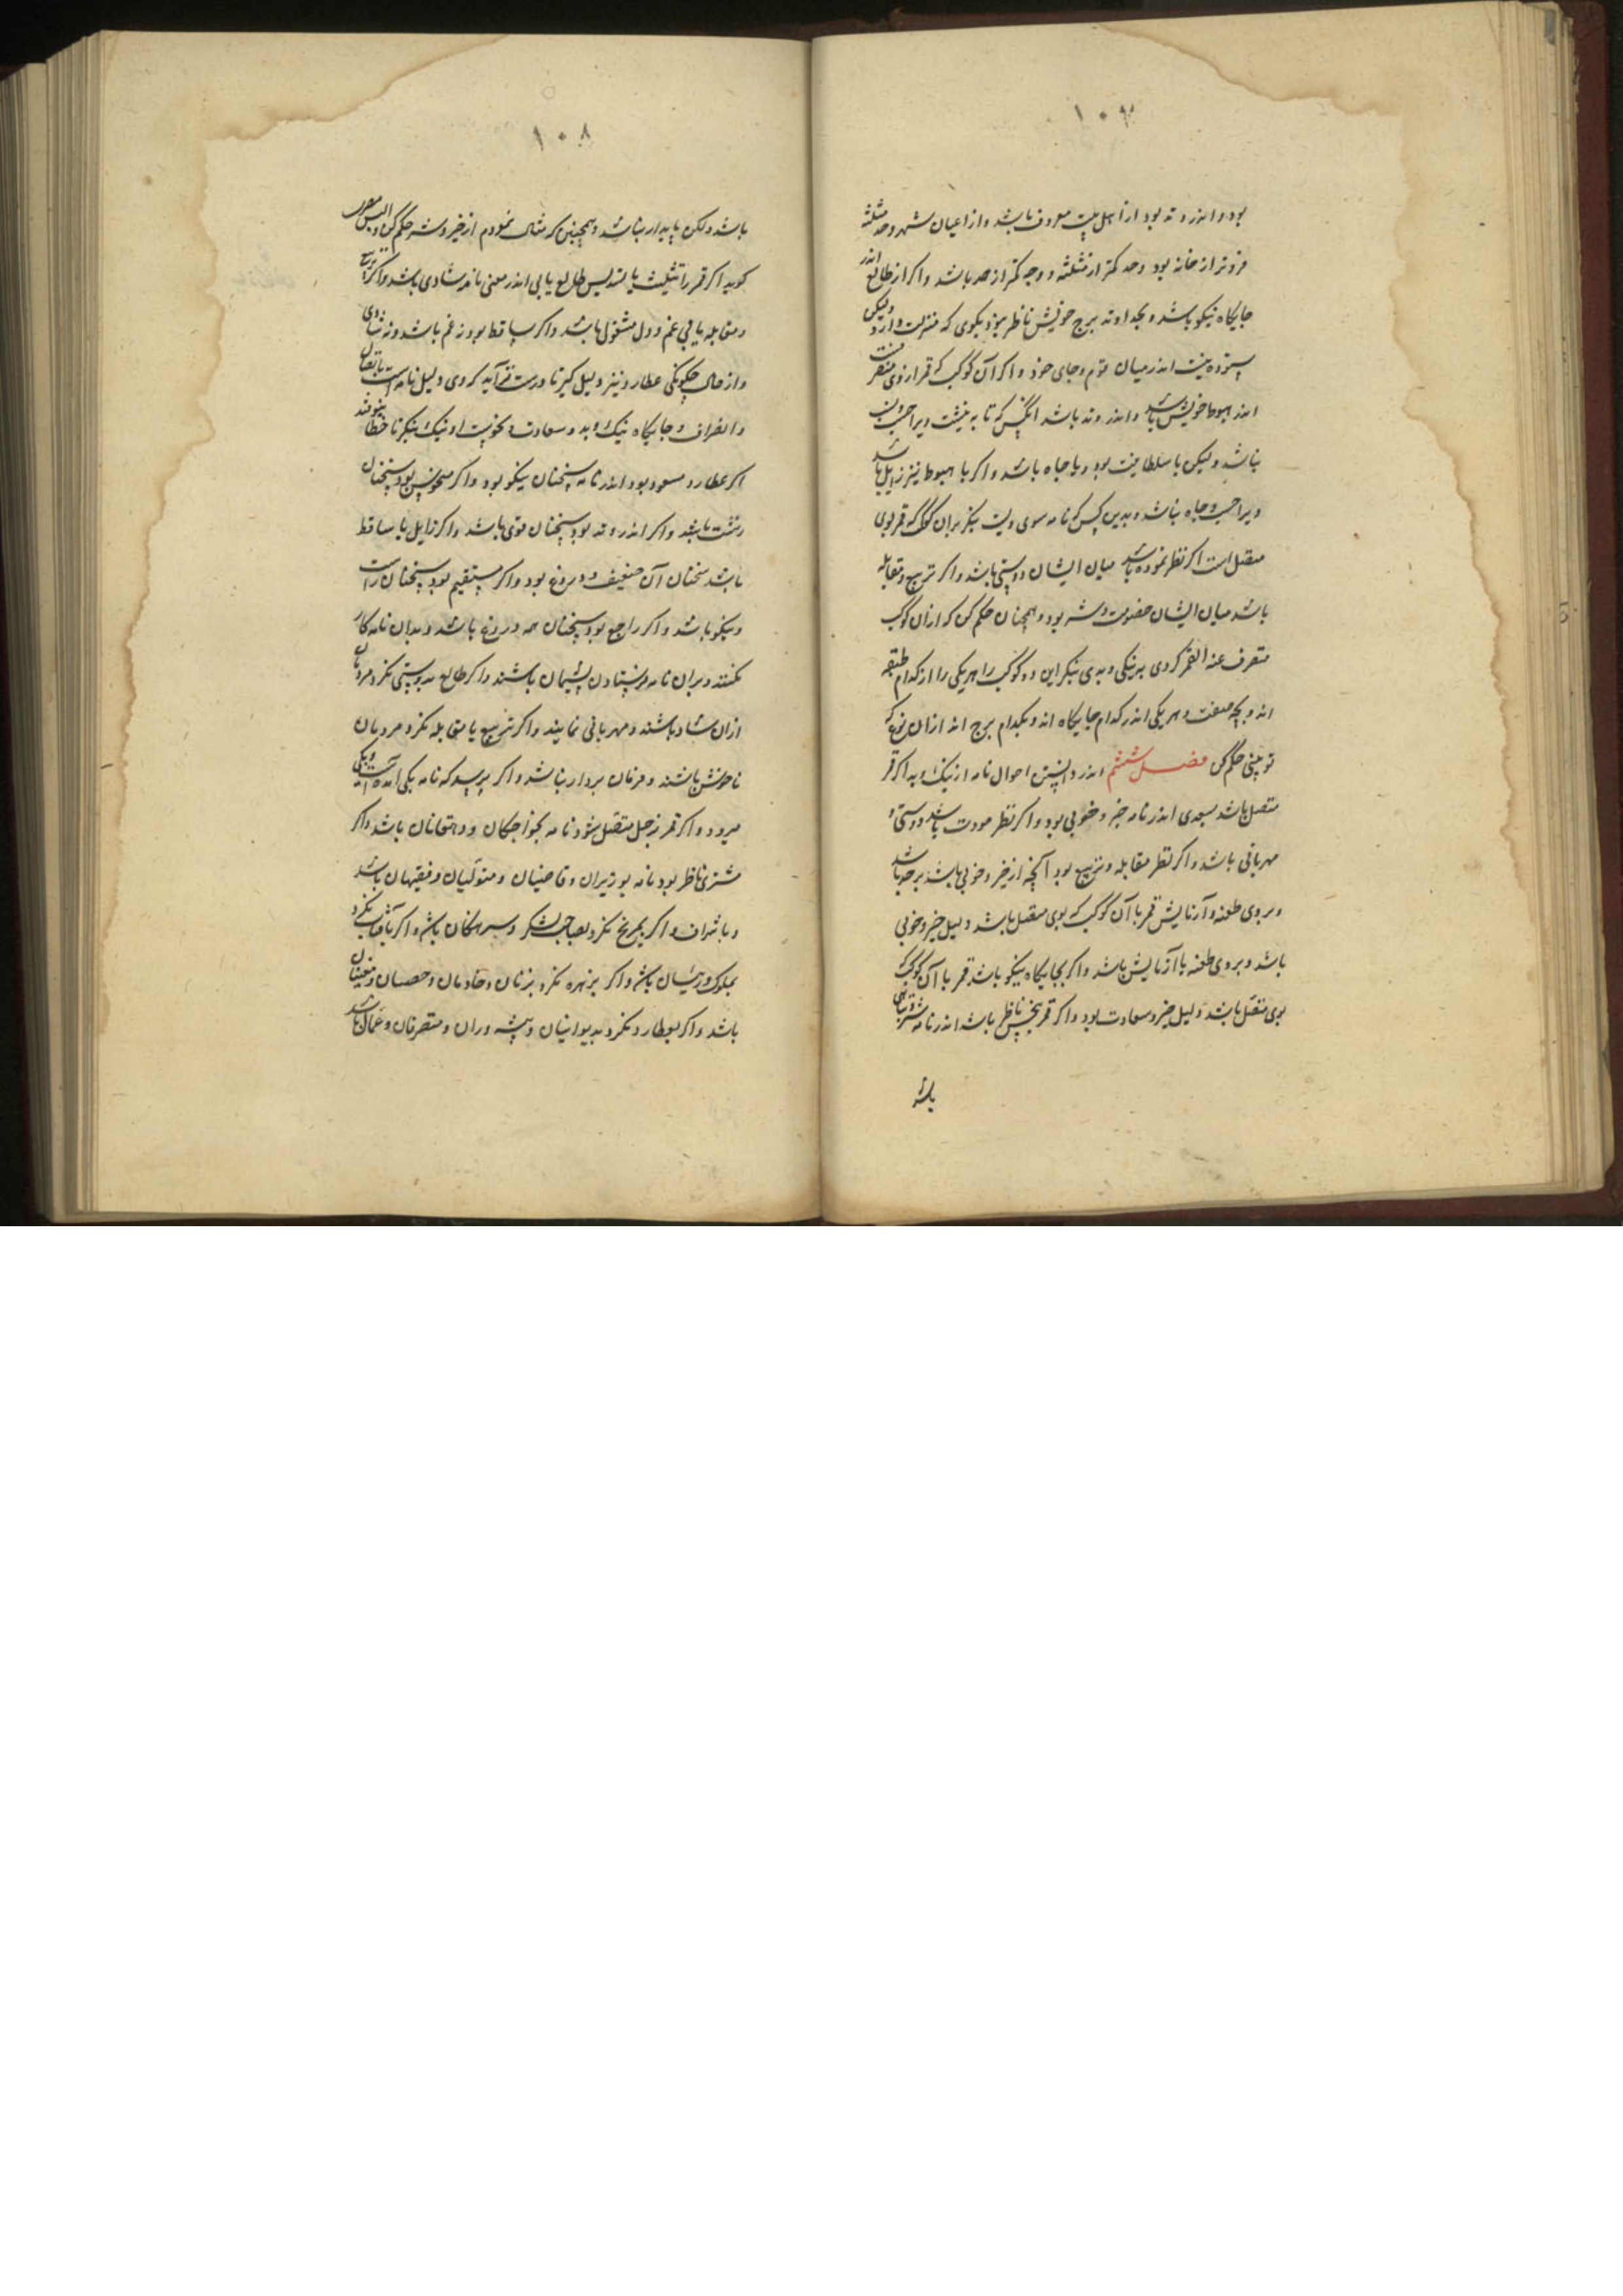 ۱۰۷
بود و اندر وتد بود از اهل بیت معروف باشد و از اعیان شهر و حد مثلثه
فروتر از خانه بود و حد کمتر از مثلثه و وجه کمتر از حد باشد و اکر از طالع اندر
جایکاه نیکو باشد و بخداوند برج خویش ناظر نبود بکوی که منزلت دارد ولیکن
ستوده نیست اندر میان قوم و جای خود و اکر آن کوکب که قمر از وی منصرفست
اندر هبوط خویش باشد و اندر وتد باشد انکس که نامه نبشت ویرا حسب
نباشد ولیکن با سلطانیت بود و با جاه باشد و اکر با هبوط نیز زایل باشد
ویرا حسب و جاه نباشد و بدین کس که نامه سوی ویست بنکر بدان کوکب که قمر بوی
متصل است اکر نظر نموده باشد میان ایشان دوستی باشد و اکر تربیع و مقابله
باشد میان ایشان خصومت و شر بود و همچنان حکم کن که از آن کوکب
منصرف عنه القمر کردی بنیکی و بدی بنکر این دو کوکب را هر یکی را از کدام طبقه
اند و بچه صفت و هر یکی اندر کدام جایکاه اند و بکدام برج اند از آن نوع که
تو بینی حکم کن فصل ششم اندر دانستن احوال نامه از نیک و بد اکر قمر
متصل باشد بسعدی اندر نامه خیر و خوبی بود و اکر نظر مودت باشد دوستی و
مهربانی باشد و اکر نظر مقابله و تربیع بود آنچه از خیر و خوبی باشد بر حد باشد
و بروی طعنه و آزمایش قمر با آن کوکب که بوی متصل باشد دلیل خیر و خوبی
باشد و بروی طعنه با آزمایش باشد و اکر بجایکاه نیکو باشد قمر با آن کوکب که
بوی متصل باشد دلیل خیر و سعادت بود و اکر قمر بنحس ناظر باشد اندر نامه شر و تباهی
باشد
۱۰۸
باشد ولکن پایدار نباشد و همچنین که مثال نمودم از خیر و شر حکم کن
کوید اکر قمر را تثلیث یا تسدیس طالع یابی اندر معنی نامه شادی باشد و اکر تربیع
و مقابله یابی غم و دل مشغولی باشد و اکر ساقط بود نه غم باشد و نه شادی
و از حال چکونکی عطارد نیز دلیل کیر تا درست تر آید که وی دلیل نامه است باتصال
و انصراف و جایکاه نیک و بد و سعادت و نحوست او نیک بنکر تا خطا نیوفتد
اکر عطارد مسعود بود اندر نامه سخنان نیکو بود و اکر منحوس بود سخنان
زشت باشد و اکر اندر وتد بود سخنان قوی باشد و اکر زایل یا ساقط
باشد سخنان آن ضعیف و دروغ بود و اکر مستقیم بود سخنان راست
و نیکو باشد و اکر راجع بود سخنان همه دروغ باشد و بدان نامه کار
نکنند و بران نامه فرستادن پشیمان باشند و اکر طالع بدوستی نکرد مردمان
ازان شاد باشند و مهربانی نمایند و اکر تربیع یا مقابله نکرد مردمان
ناخوش باشند و فرمان بردار نباشد و اکر پرسد که نامه بکی آمده است
میرود و اکر قمر بزحل متصل شود نامه بخواجکان و دهقانان باشد و اکر
مشتری ناظر بود نامه بوزیران و قاضیان و متولیان و فقیهان باشد
و باشراف و اکر بمریخ نکرد بصاحب لشکر و سرهنکان باشد و اکر بآفتاب نکرد
بملوک و رئیسان باشد و اکر بزهره نکرد بزنان و خادمان و خصیان و مغنیان
باشد و اکر بعطارد نکرد بدیوانیان و پیشه وران و متصرفان و عمال باشد